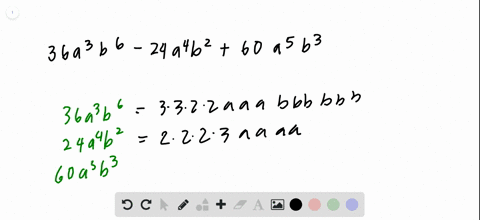 36a³b⁶ - 24a⁴b² + 60 a⁵b³
36a³b⁶ = 3·3·2·2 a a a b b b b b b
24a⁴b² = 2·2·2·3 a a a a
60a⁵b³